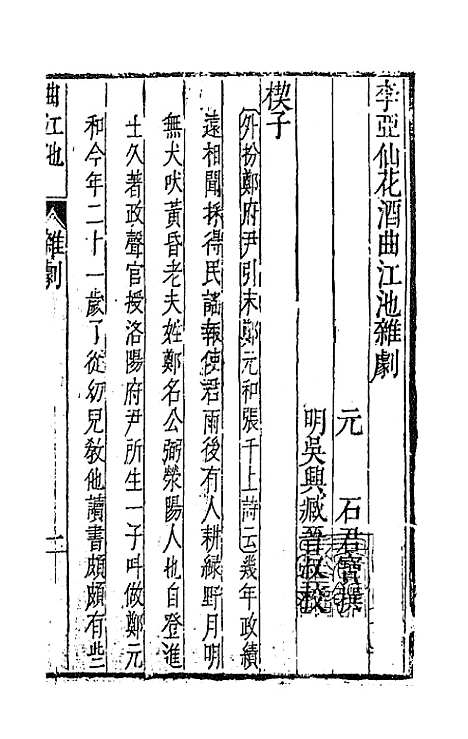 李亞仙花酒曲江池雜劇
元　石君寶撰
明吳興臧晉叔校
楔子
外扮鄭府尹引末鄭元和張千上詩云幾年政績
遠相聞採得民謠報使君雨後有人耕綠野月明
無犬吠黃昏老夫姓鄭名公弼滎陽人也自登進
士久著政聲官授洛陽府尹所生一子呌做鄭元
和今年二十一歲了從幼兒敎他讀書頗頗有些
曲江池　雜劇　一